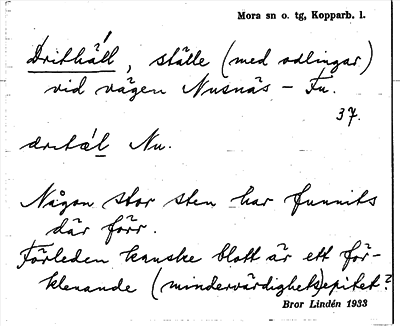 Mora sn o. tg, Kopparb. l.
Drithäll, ställe (med odlingar)
vid vägen Nusnäs – Fu.
37.
dritæ̀l Nu.
Någon stor sten har funnits
där förr.
Förleden kanske blott är ett för-
klenande (mindervärdighets)epitet?
Bror Lindén 1933